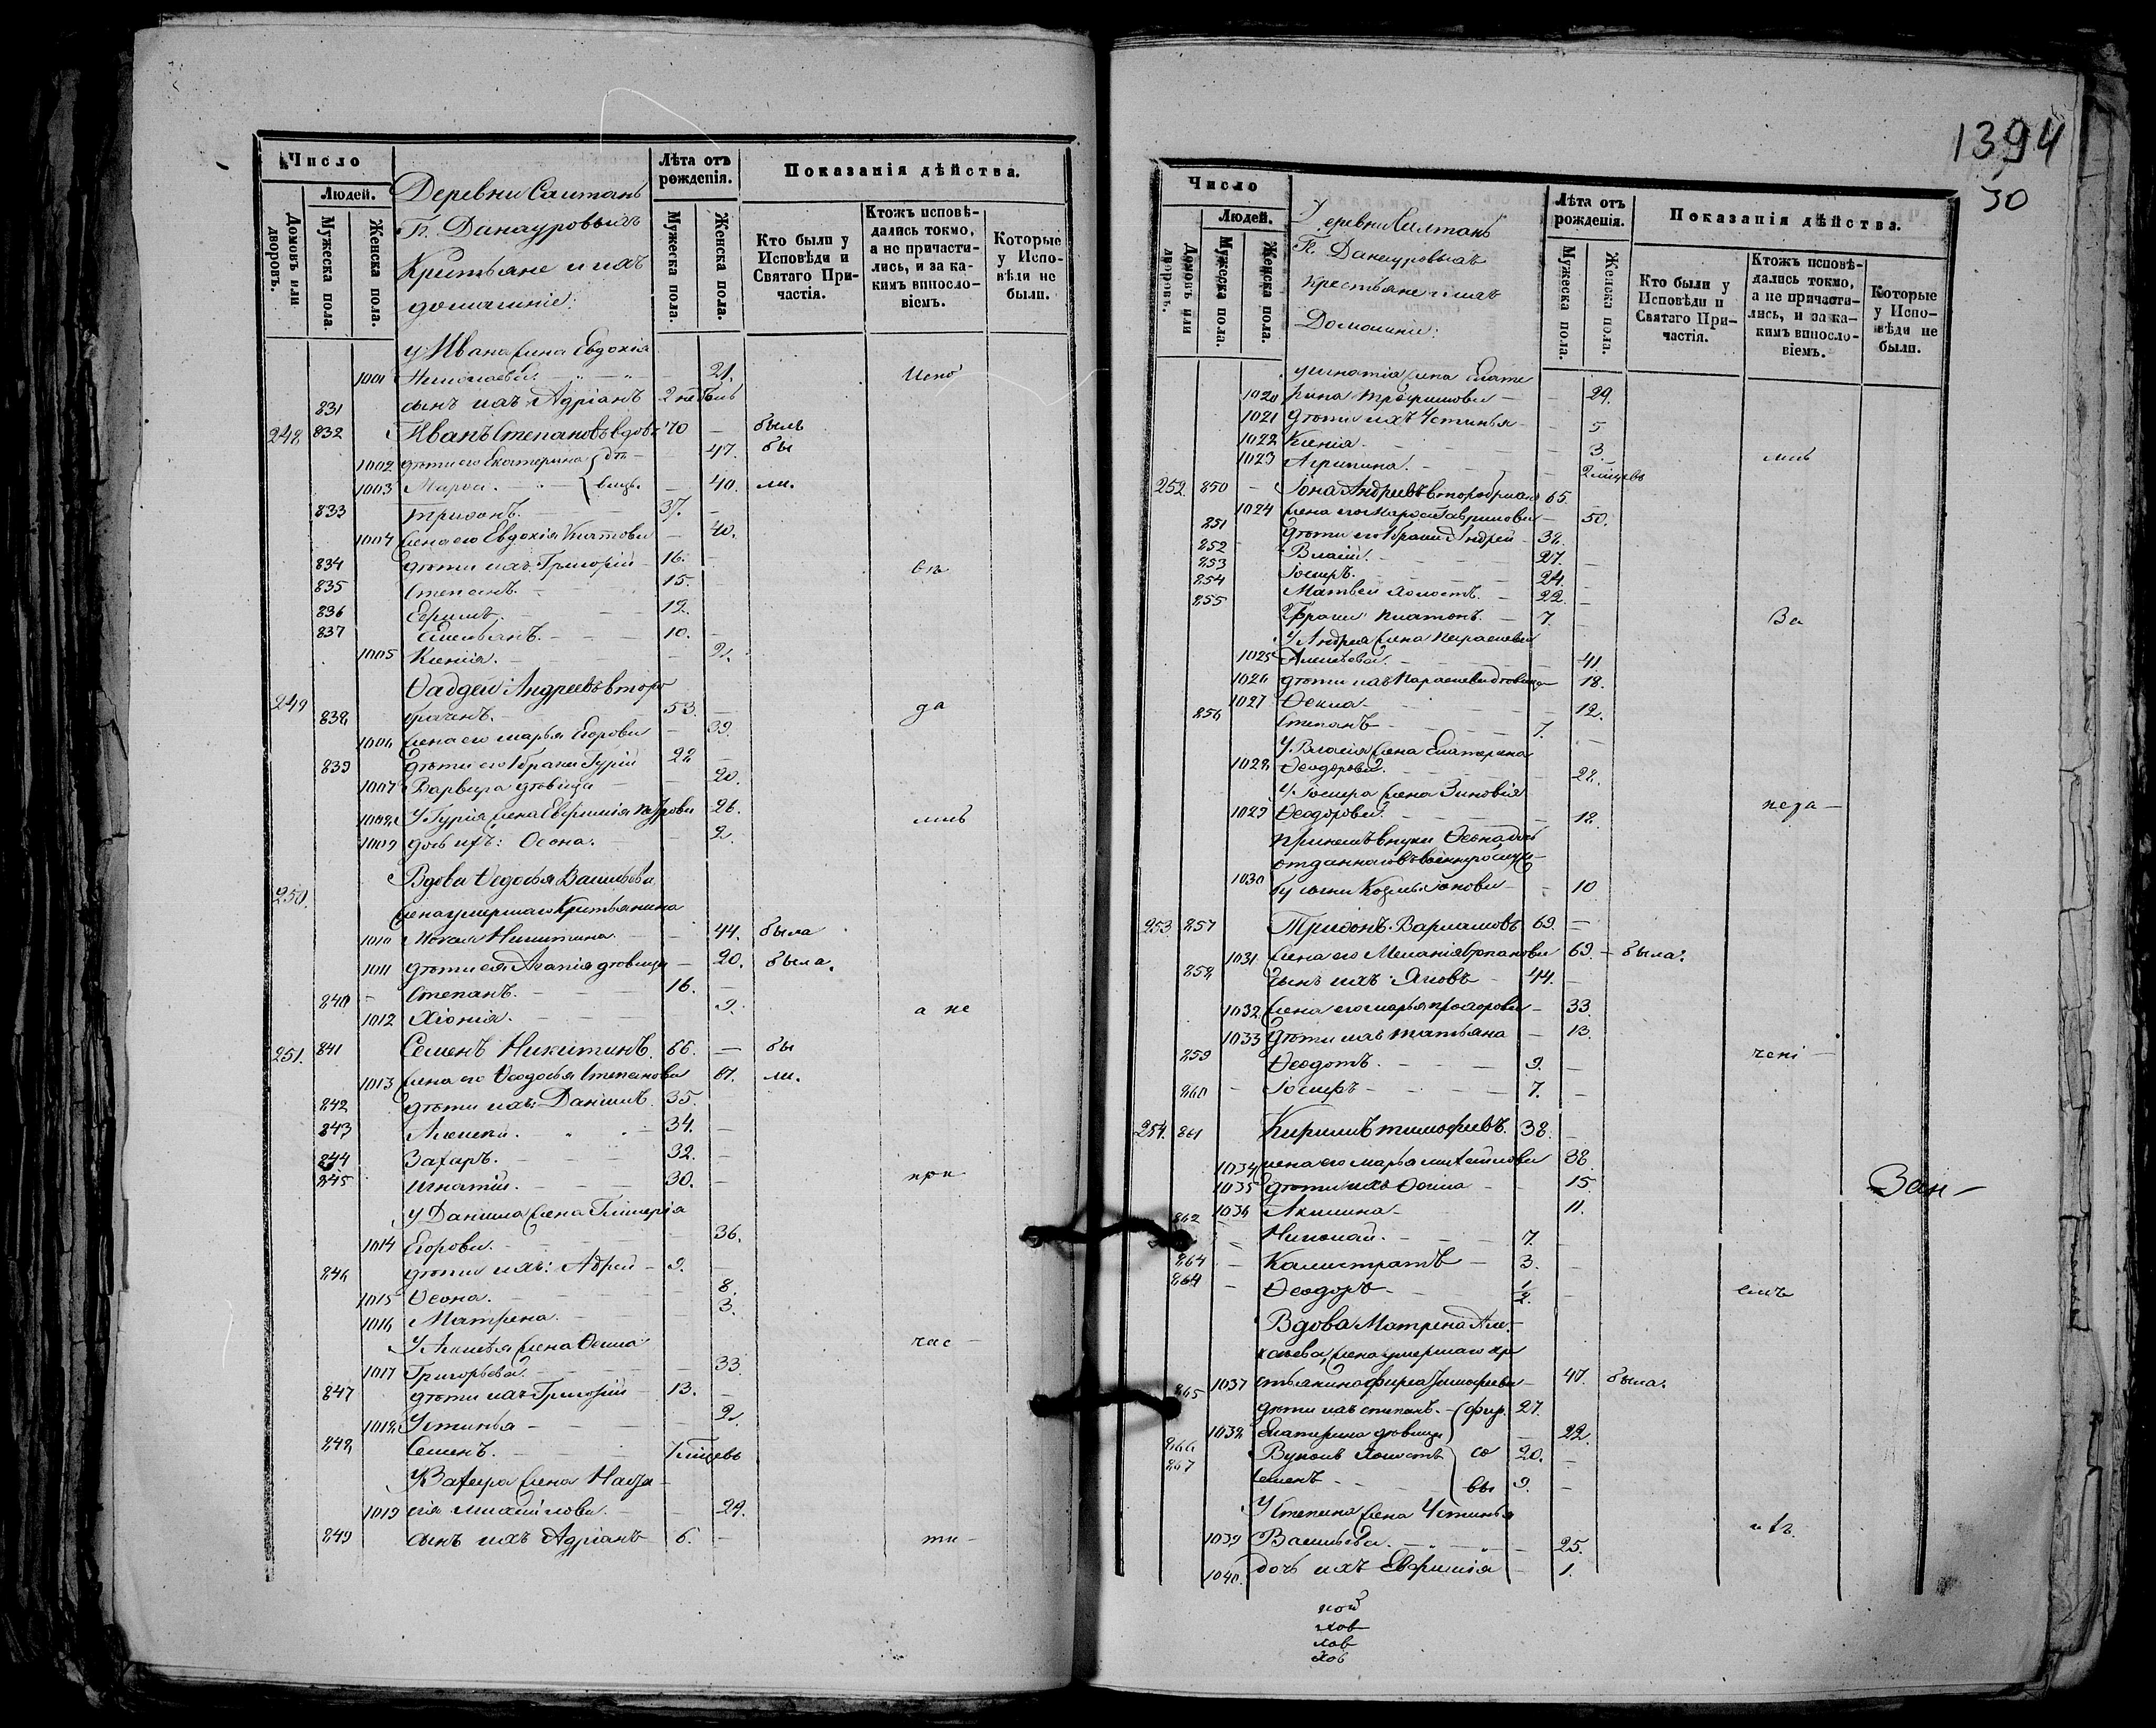 Число
Людей.
Домовъ или дворовъ.
Мужеска пола.
Женска пола.
Деревни Салтанъ
Гг. Данауровыхъ
Крестьяне и ихъ
домашніе:
Лѣта отъ рожденія.
Мужеска пола.
Женска пола.
Показанія дѣйства.
Кто были у Исповѣди и Святаго Причастія.
Ктожъ исповѣдались токмо, а не причастились, и за какимъ винословіемъ.
Которые у Исповѣди не были.
у Ивана жена Евдохія
1001 Николаева. 21. Испо
831 сынъ ихъ Адріанъ 2
248 832 Иванъ Степановъ вдовъ 70 — былъ
1002 дѣти его Екатерина дѣ- 47. бы
1003 Марѳа. вицы. 40. ли.
833 Трифонъ. 37.
1004 жена его Евдохія 40.
834 дѣти ихъ: Григорій 16. вѣ
835 Степанъ. 15.
836 Ефримъ. 12.
837 Емельянъ. 10.
1005 Ксенія. 2.
Ѳаддей Андреевъ второ
249 838 браченъ. 53. да
1006 жена его Марья Егорова 39.
839 дѣти его 1 брака Гурій 22
1007 Варвара дѣвица 20.
1008 У Гурія жена Евфимія 26. лись
1009 дочь ихъ: Ѳеона. 2.
250. Вдова Ѳедосья Васильева
жена умершаго Крестьянина
1010 Никитина. 44. была
1011 дѣти ея Агапія дѣвица 20. была.
840 Степанъ. 16.
1012 Хіонія. 9. а не
251. 841 Семенъ Никитинъ. 66. — бы
1013 жена его Ѳеодосья Степанова 67. ли.
842 дѣти ихъ: Даніилъ. 35.
843 Алексѣй. 34.
844 Захаръ. 32.
845 Игнатій. 30. при
у Даніила жена Гликерія
1014 Егорова. 36.
846 дѣти ихъ: Андрей 9.
1015 Ѳеона. 8.
1016 Матрена. 3.
У Алексѣя жена Ѳекла час
1017 Григорьева. 33.
847 дѣти ихъ Григорій 13.
1018 Устинья 2.
848 Семенъ. 7 мѣсяцевъ
У Захара жена Наста
1019 сія Михайлова. 24.
849 сынъ ихъ Адріанъ 6. ти
1394
30
Число
Людей.
Домовъ или дворовъ.
Мужеска пола.
Женска пола.
Деревни Салтанъ
Гг. Данауровыхъ
Крестьяне и ихъ
Домашніе:
Лѣта отъ рожденія.
Мужеска пола.
Женска пола.
Показанія дѣйства.
Кто были у Исповѣди и Святаго Причастія.
Ктожъ исповѣдались токмо, а не причастились, и за какимъ винословіемъ.
Которые у Исповѣди не были.
у Игнатія жена Екате
1020 рина Трефилова 29.
1021 дѣти ихъ Устинья 5
1022 Ксенія. 3. лись
1023 Агрипина. 2 мѣсяцевъ
252. 850 Іона Андреевъ второбрачн 65.
1024 жена его Марѳа Гаврилова 50.
851 дѣти его 1 брака: Андрей 38.
852 Власій. 27.
853 Іосифъ. 24.
854 Матвей холостъ. 22.
855 2 брака Платонъ. 7. За
У Андрея жена Параскева
1025 Алексѣева. 41.
1026 дѣти ихъ Параскева дѣвица 18.
1027 Ѳекла 12.
856 Степанъ 7.
У Власія жена Екатерина
1028 Ѳеодорова. 28.
У Іосифа жена Зиновія
1029 Ѳеодорова. 18. неза
Приемъ внука Ѳеона дочь
отданнаго въ военную служ
1030 бу сына Козмы Іонова 10
253. 857 Трифонъ Варламовъ 69.
1031 жена его Меланія 69. была.
858 Сынъ ихъ: Яковъ 44.
1032 жена его Марья Прохорова 33.
1033 дѣти ихъ Татьяна 13.
859 Ѳеодотъ. 9. чені
860 Іосифъ 7.
254. 861 Кирилъ Тимофеевъ. 38.
1034 жена его Марья Михайлова 38.
1035 дѣти ихъ Ѳекла 15. Зан
1036 Акилина 11.
862 Николай. 7.
864 Калистратъ 3.
864 Ѳеодоръ ½. емъ
Вдова Матрена Але
ксѣева, жена умершаго кре
1037 стьянина Фирса Тимофеева 47. была.
865 дѣти ихъ Степанъ. фир 27.
1038 Екатерина дѣвица 22.
866 Вуколъ холостъ со 20.
867 Семенъ вы 9.
У Степана жена Устинья
1039 Васильева. 25. ихъ.
1040. дочь ихъ Евфимія 1.